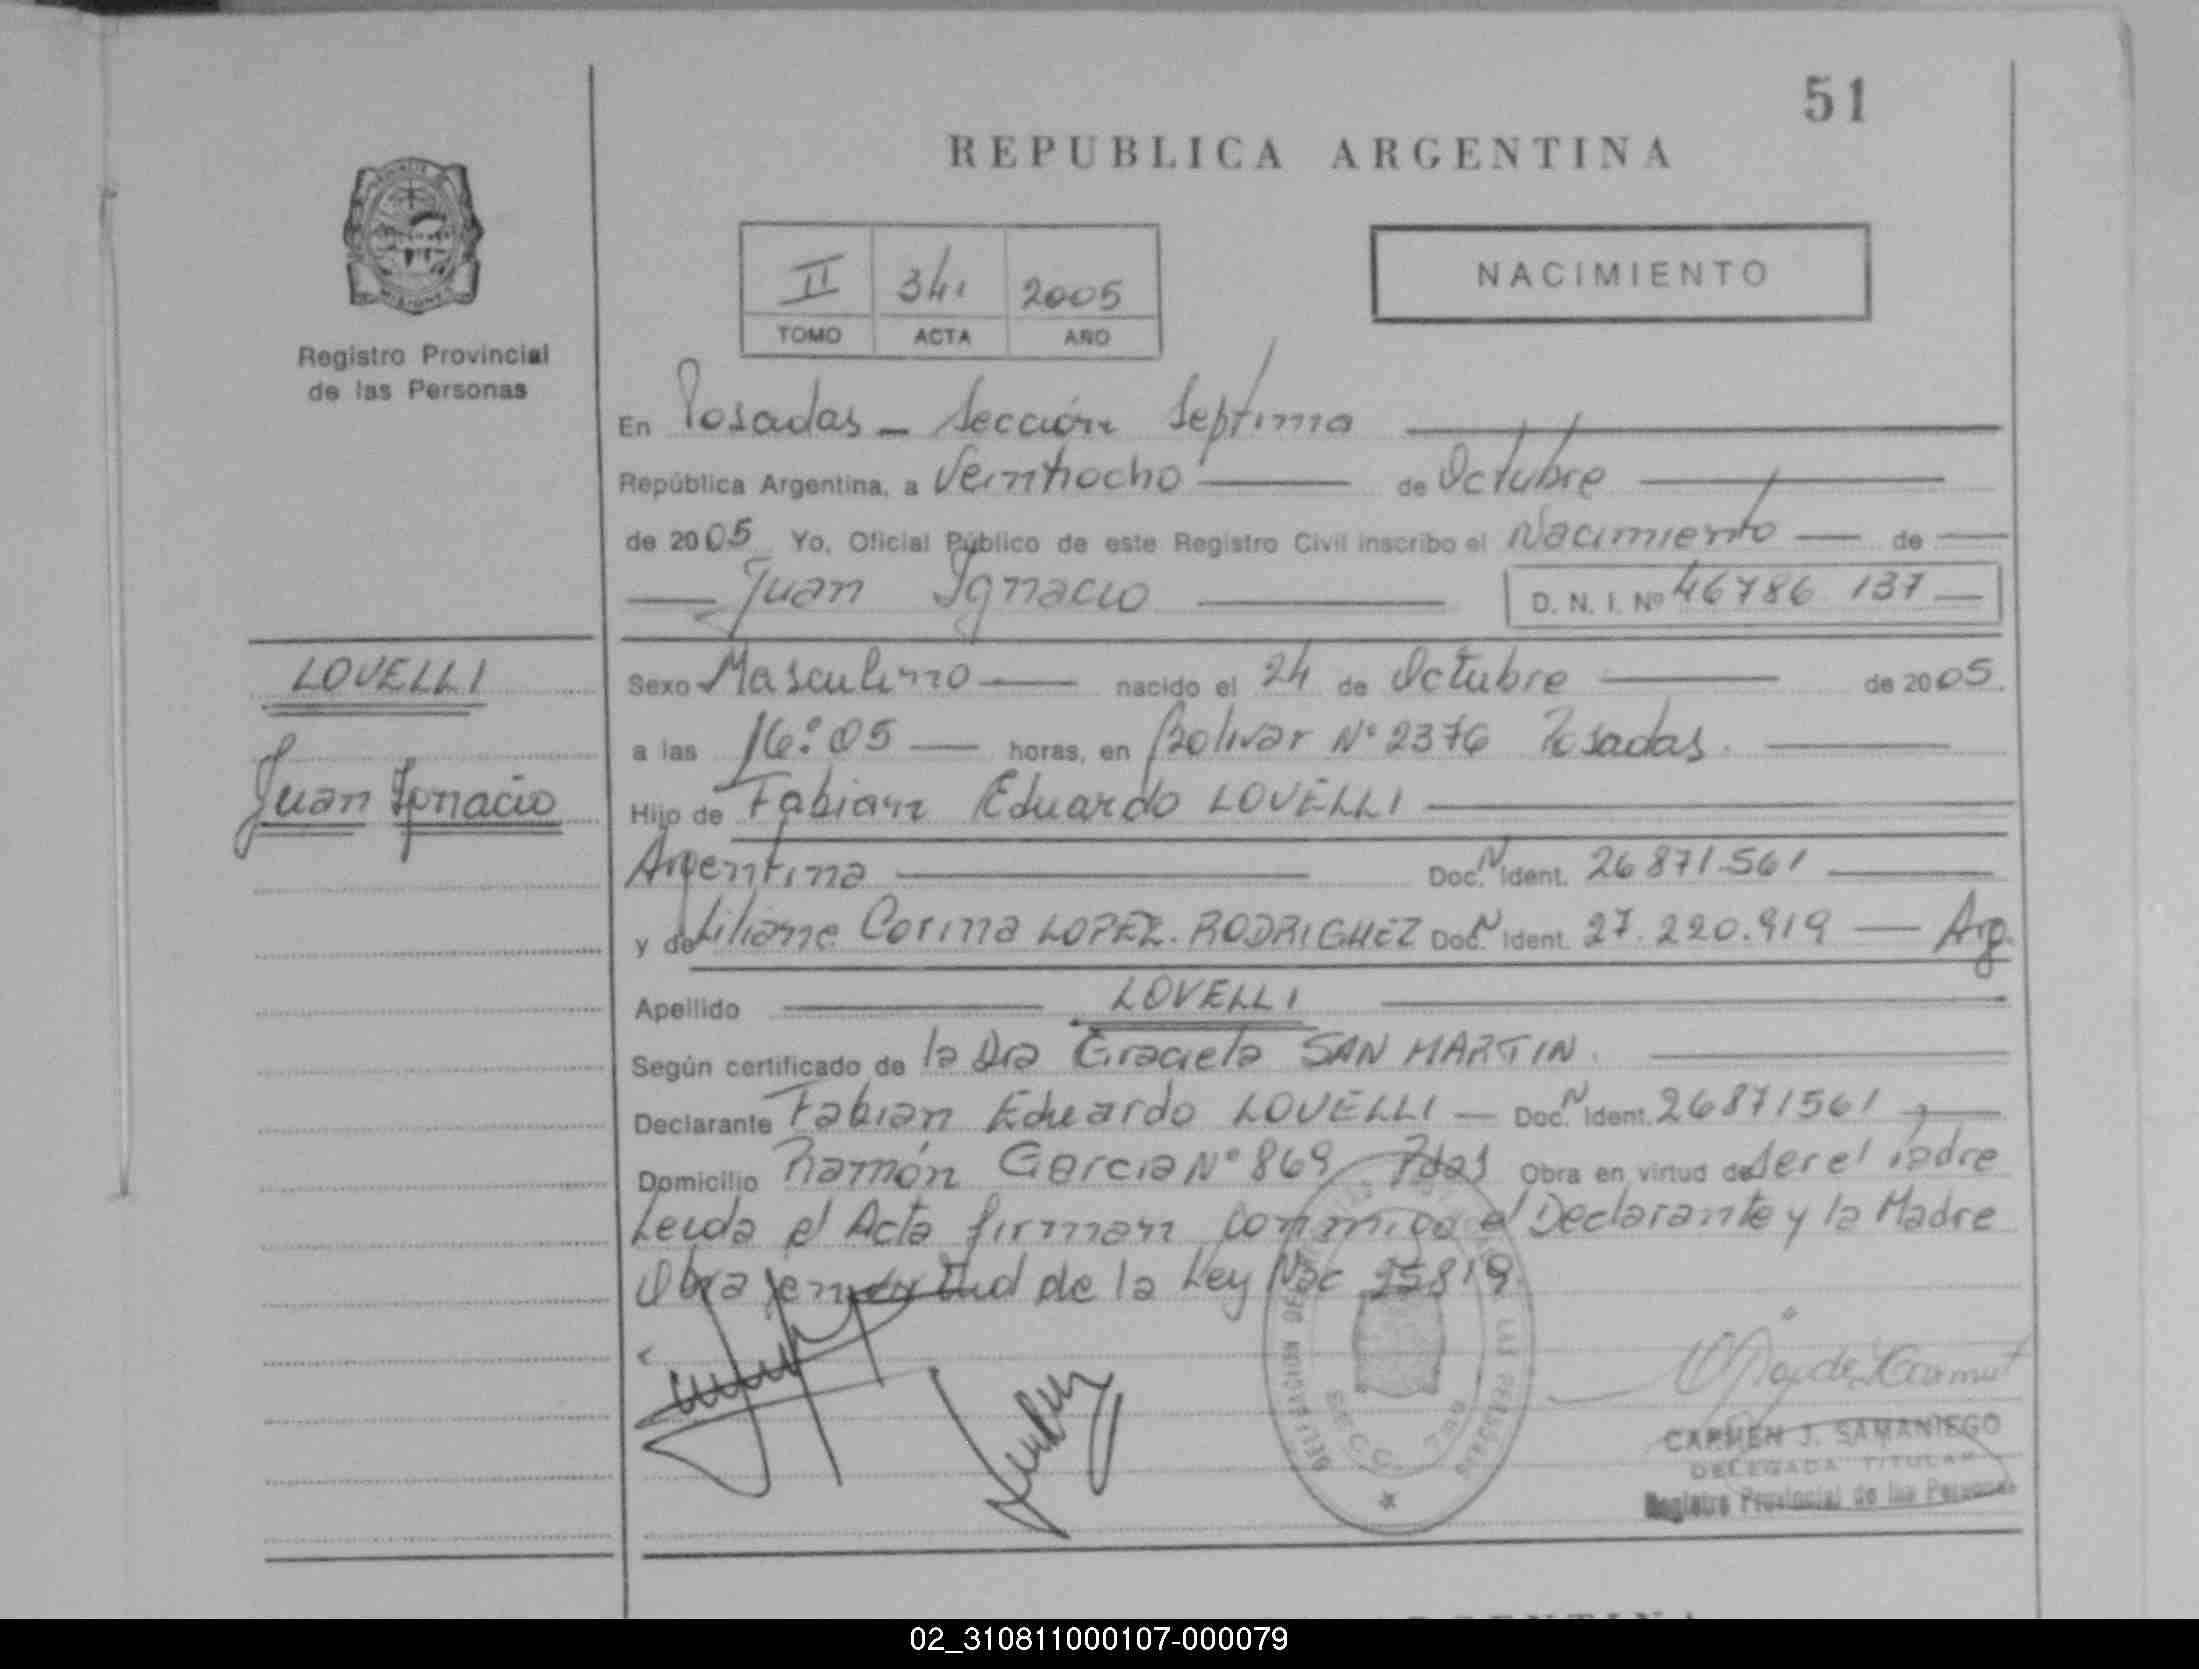 51
REPUBLICA ARGENTINA
MISIONES
Registro Provincial
de las Personas
II 341 2005
TOMO ACTA AÑO
NACIMIENTO
En Posadas - Sección Septima
República Argentina, a Veintiocho de Octubre
de 2005 Yo, Oficial Público de este Registro Civil inscribo el Nacimiento de
Juan Ignacio D. N. I. Nº 46786 137
LOVELLI
Juan Ignacio
Sexo Masculino nacido el 24 de Octubre de 2005.
a las 16:05 horas, en Bolivar Nº 2376 Posadas.
Hijo de Fabian Eduardo LOVELLI
Argentina Doc. N Ident. 26871561
y de Liliane Corina LOPEZ. RODRIGUEZ Doc. N Ident. 27.220.919 Arg.
Apellido LOVELLI
Según certificado de la Dra Graciela SAN MARTIN.
Declarante Fabian Eduardo LOVELLI Doc. N Ident. 26871561
Domicilio Ramón Garcia Nº 869 Pdas Obra en virtud de Ser el Padre
Leida el Acta firman conmigo el Declarante y la Madre
Obra en virtud de la Ley Nac 25819.
SECC. 7ma
LAS PERSONAS
CARMEN J. SAMANIEGO
DELEGADA TITULAR
Registro Provincial de las Personas
02_310811000107-000079